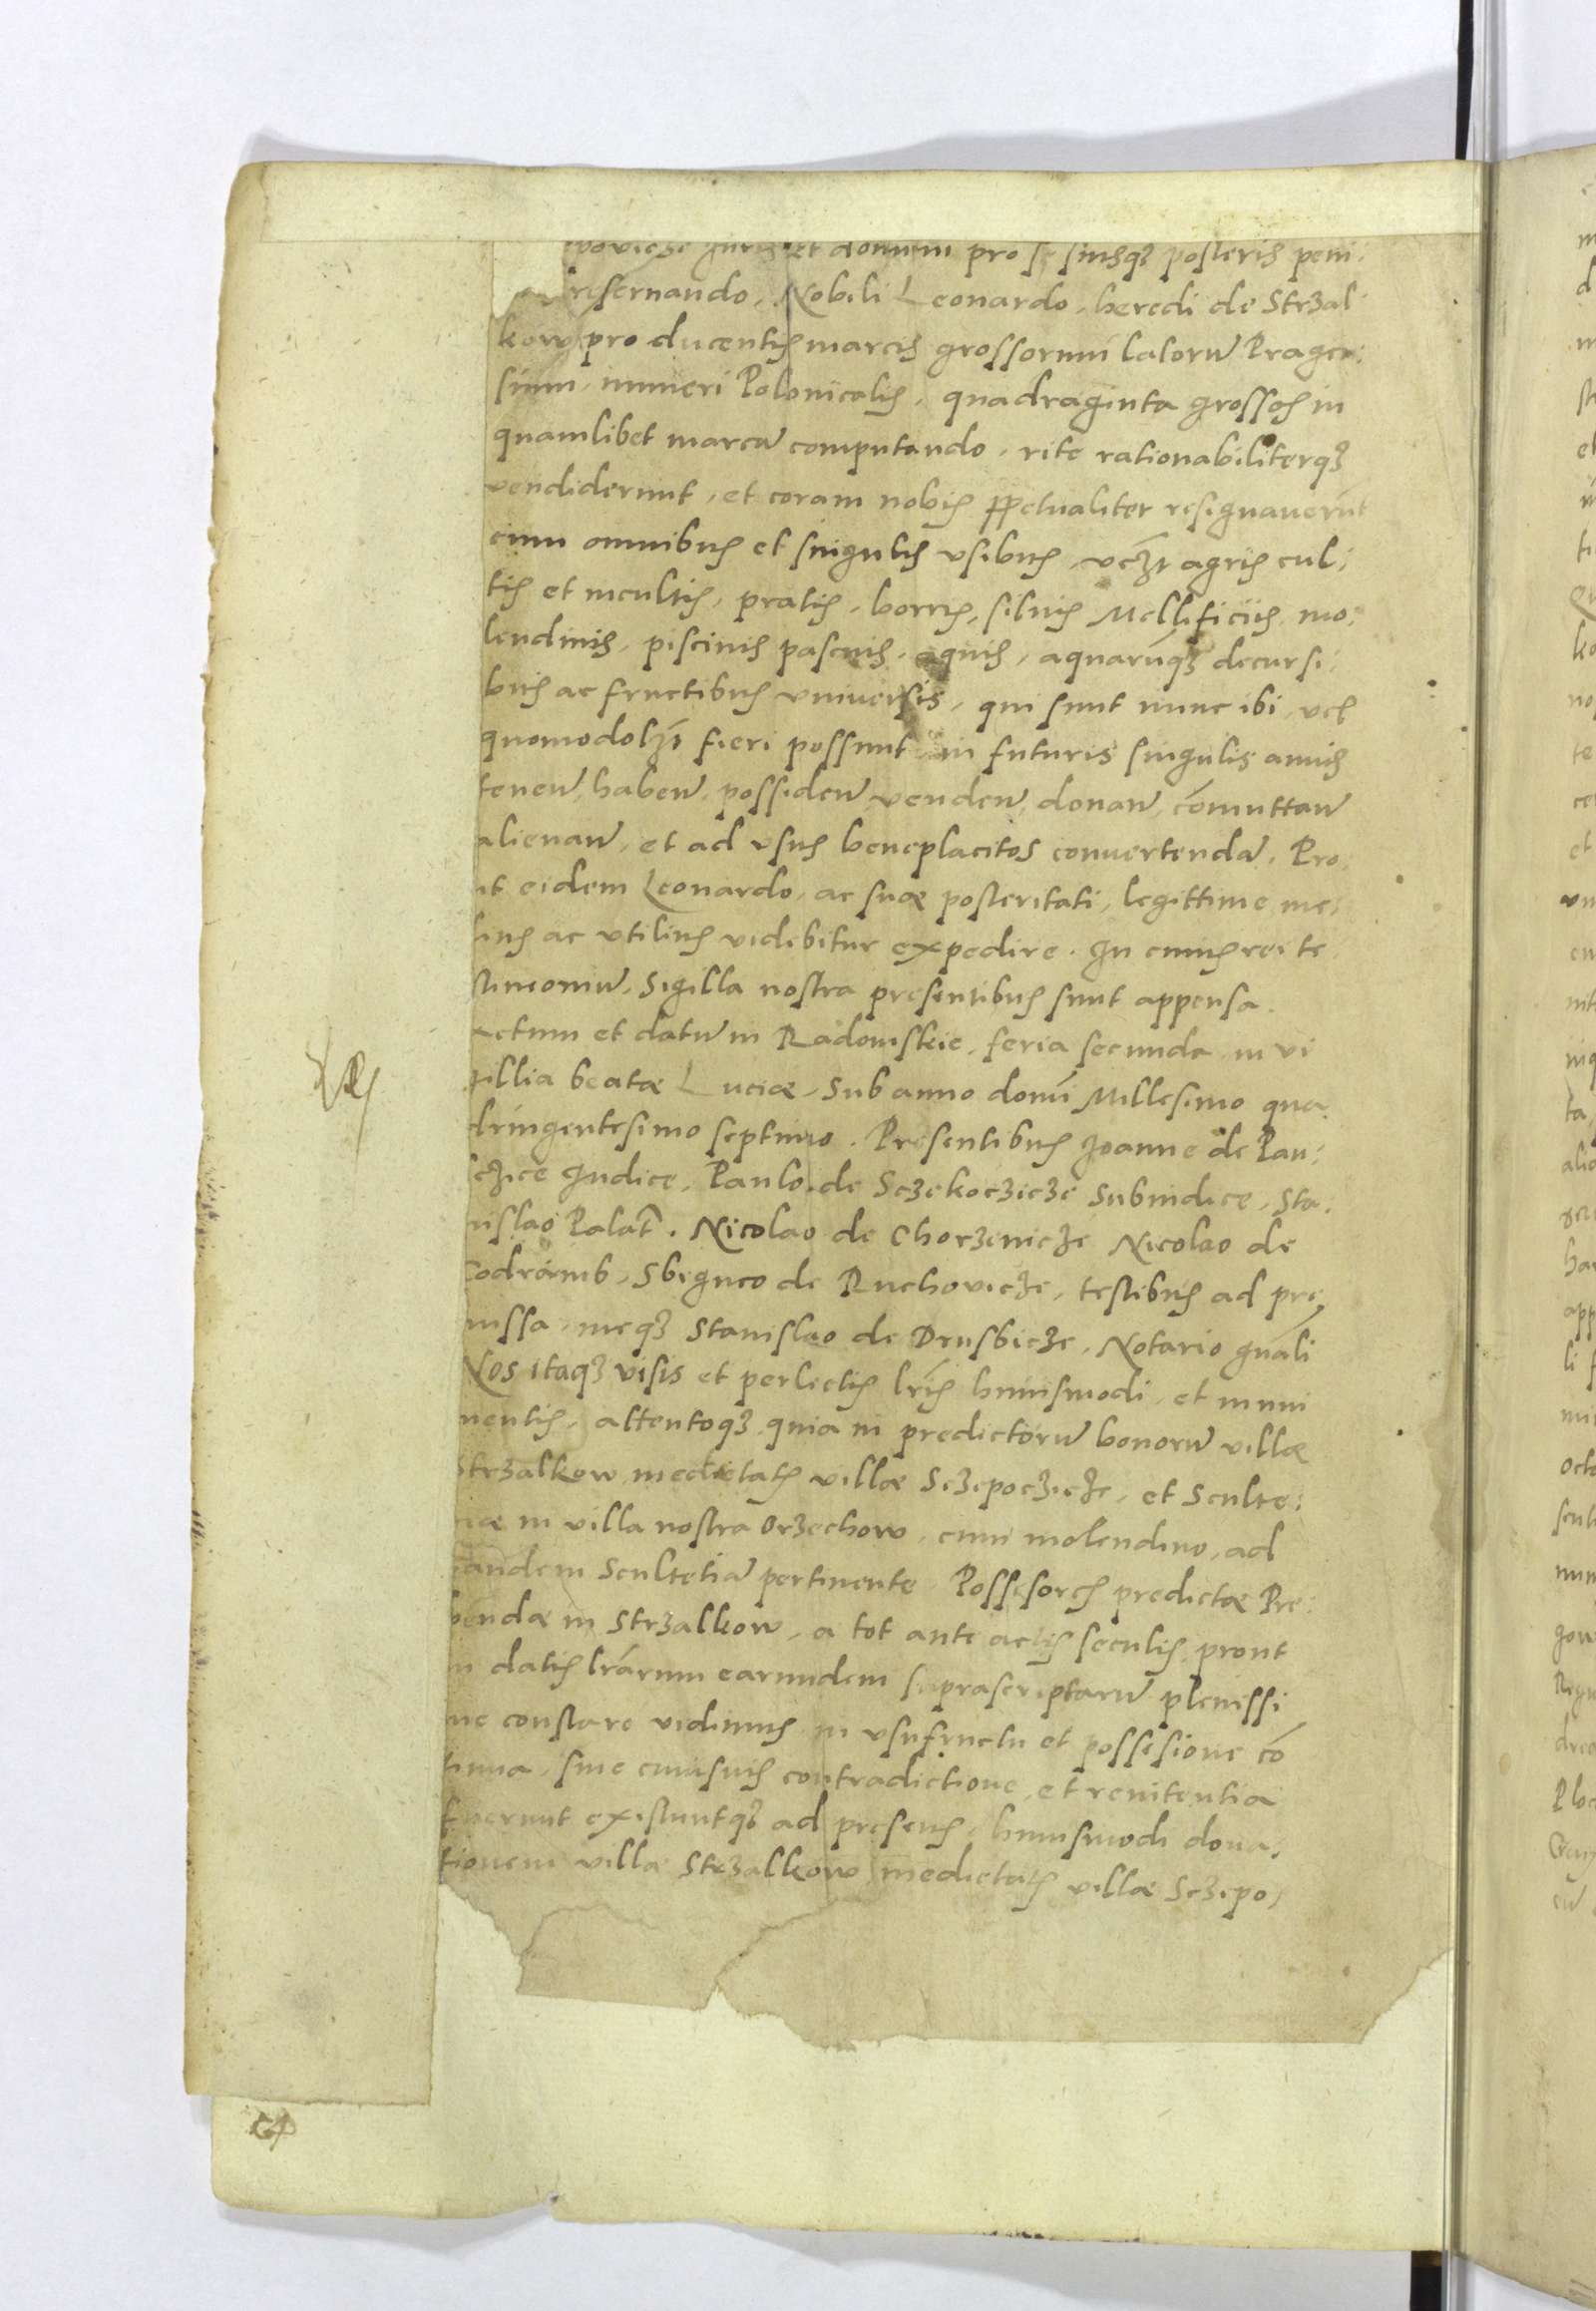 iuris et domum pro se suisq₃ posteris peni:
reseruando, Nobili Leonardo, heredi de Strzal
kow pro ducentis marcis grossorum latorū Pragen:
sium, numeri Polonicalis, quadraginta grossos in
quamlibet marcā computando, rite rationabiliterq₃
vendiderunt, et coram nobis ꝑpetualiter resignauerūt
cum omnibus et singulis vsibus, vcz̄t agris cul:
tis et incultis, pratis, borris, siluis Mellificiis, mo:
lendinis, piscinis pascuis, aquis, aquarūq₃ decursi:
bus ac fructibus vniuersis, qui sunt nunc ibi, vel
quomodolz̄t fieri possunt in futuris singulis annis
tenen̄, haben̄, possiden̄ venden̄, donan̄, cōmuttan̄
alienan̄, et ad vsus beneplacitos conuertendā. Pro:
ut eidem Leonardo, ac suæ posteritati, legittime me:
lius ac vtilius videbitur expedire. In cuius rei te
stimoniū, Sigilla nostra presentibus sunt appensa.
Actum et datū in Radomskie, feria secunda in vi
gillia beatæ Luciæ, Sub anno domī Millesimo qua:
dringentesimo septimo. Presentibus Joanne de Pan:
czicze Judice, Paulo de Sczekoczicze Subiudice, Sta:
nislao Palat̄. Nicolao de Chorzenicze Nicolao de
Codramb, Sbigneo de Ruchowicze, testibus ad pre
missa, meq₃ Stanislao de Drusbicze, Notario gn̄ali
Nos itaq₃ visis et perlectis lr̄is huiusmodi, et muni
mentis, attentoq₃ quia in predictorū bonorū villæ
Strzalkow medietatis villæ Sczepoczicze, et Sculte:
tiæ in villa nostra Orzechow, cum molendino, ad
eandem Scultetiā pertinente Possesores predictæ Pre:
bendæ in Strzalkow, a tot ante actis seculis, prout
in datis lr̄arum earundem suprascriptarū plenissi
me constare vidimus in vsufructu et possesione cō
tinua, sine cuiusuis contradictione, et renitentia
fuerunt existuntq₃ ad presens, huiusmodi dona:
tionem villæ Strzalkow medietatis villæ Sczepo: